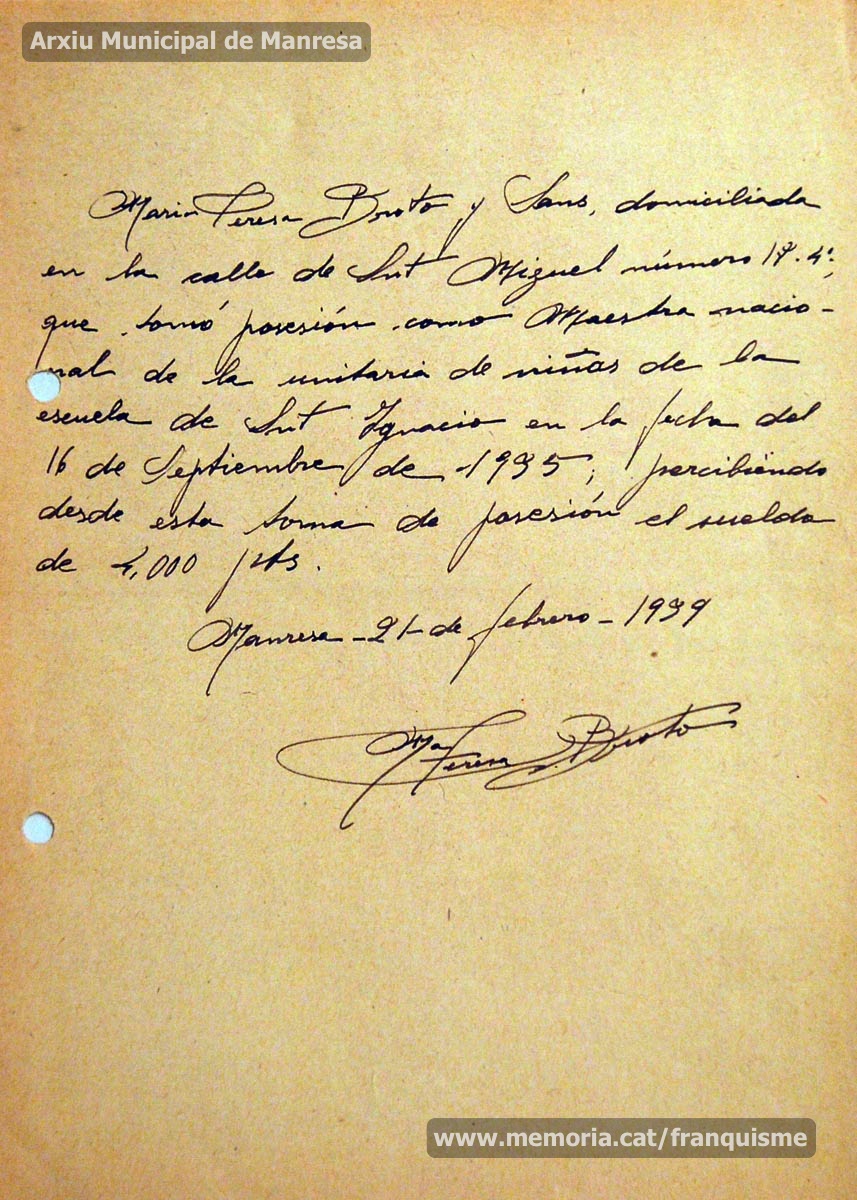 Arxiu Municipal de Manresa
Maria Teresa Broto y Sans, domiciliada
en la calle de Snt Miguel número 17. 4º;
que tomó posesión como Maestra nacio-
nal de la unitaria de niñas de la
escuela de Snt Ignacio en la fecha del
16 de Septiembre de 1935; percibiendo
desde esta toma de posesión el sueldo
de 4,000 pts.
Manresa - 21 - de febrero - 1939
Mª Teresa Broto
www.memoria.cat/franquisme